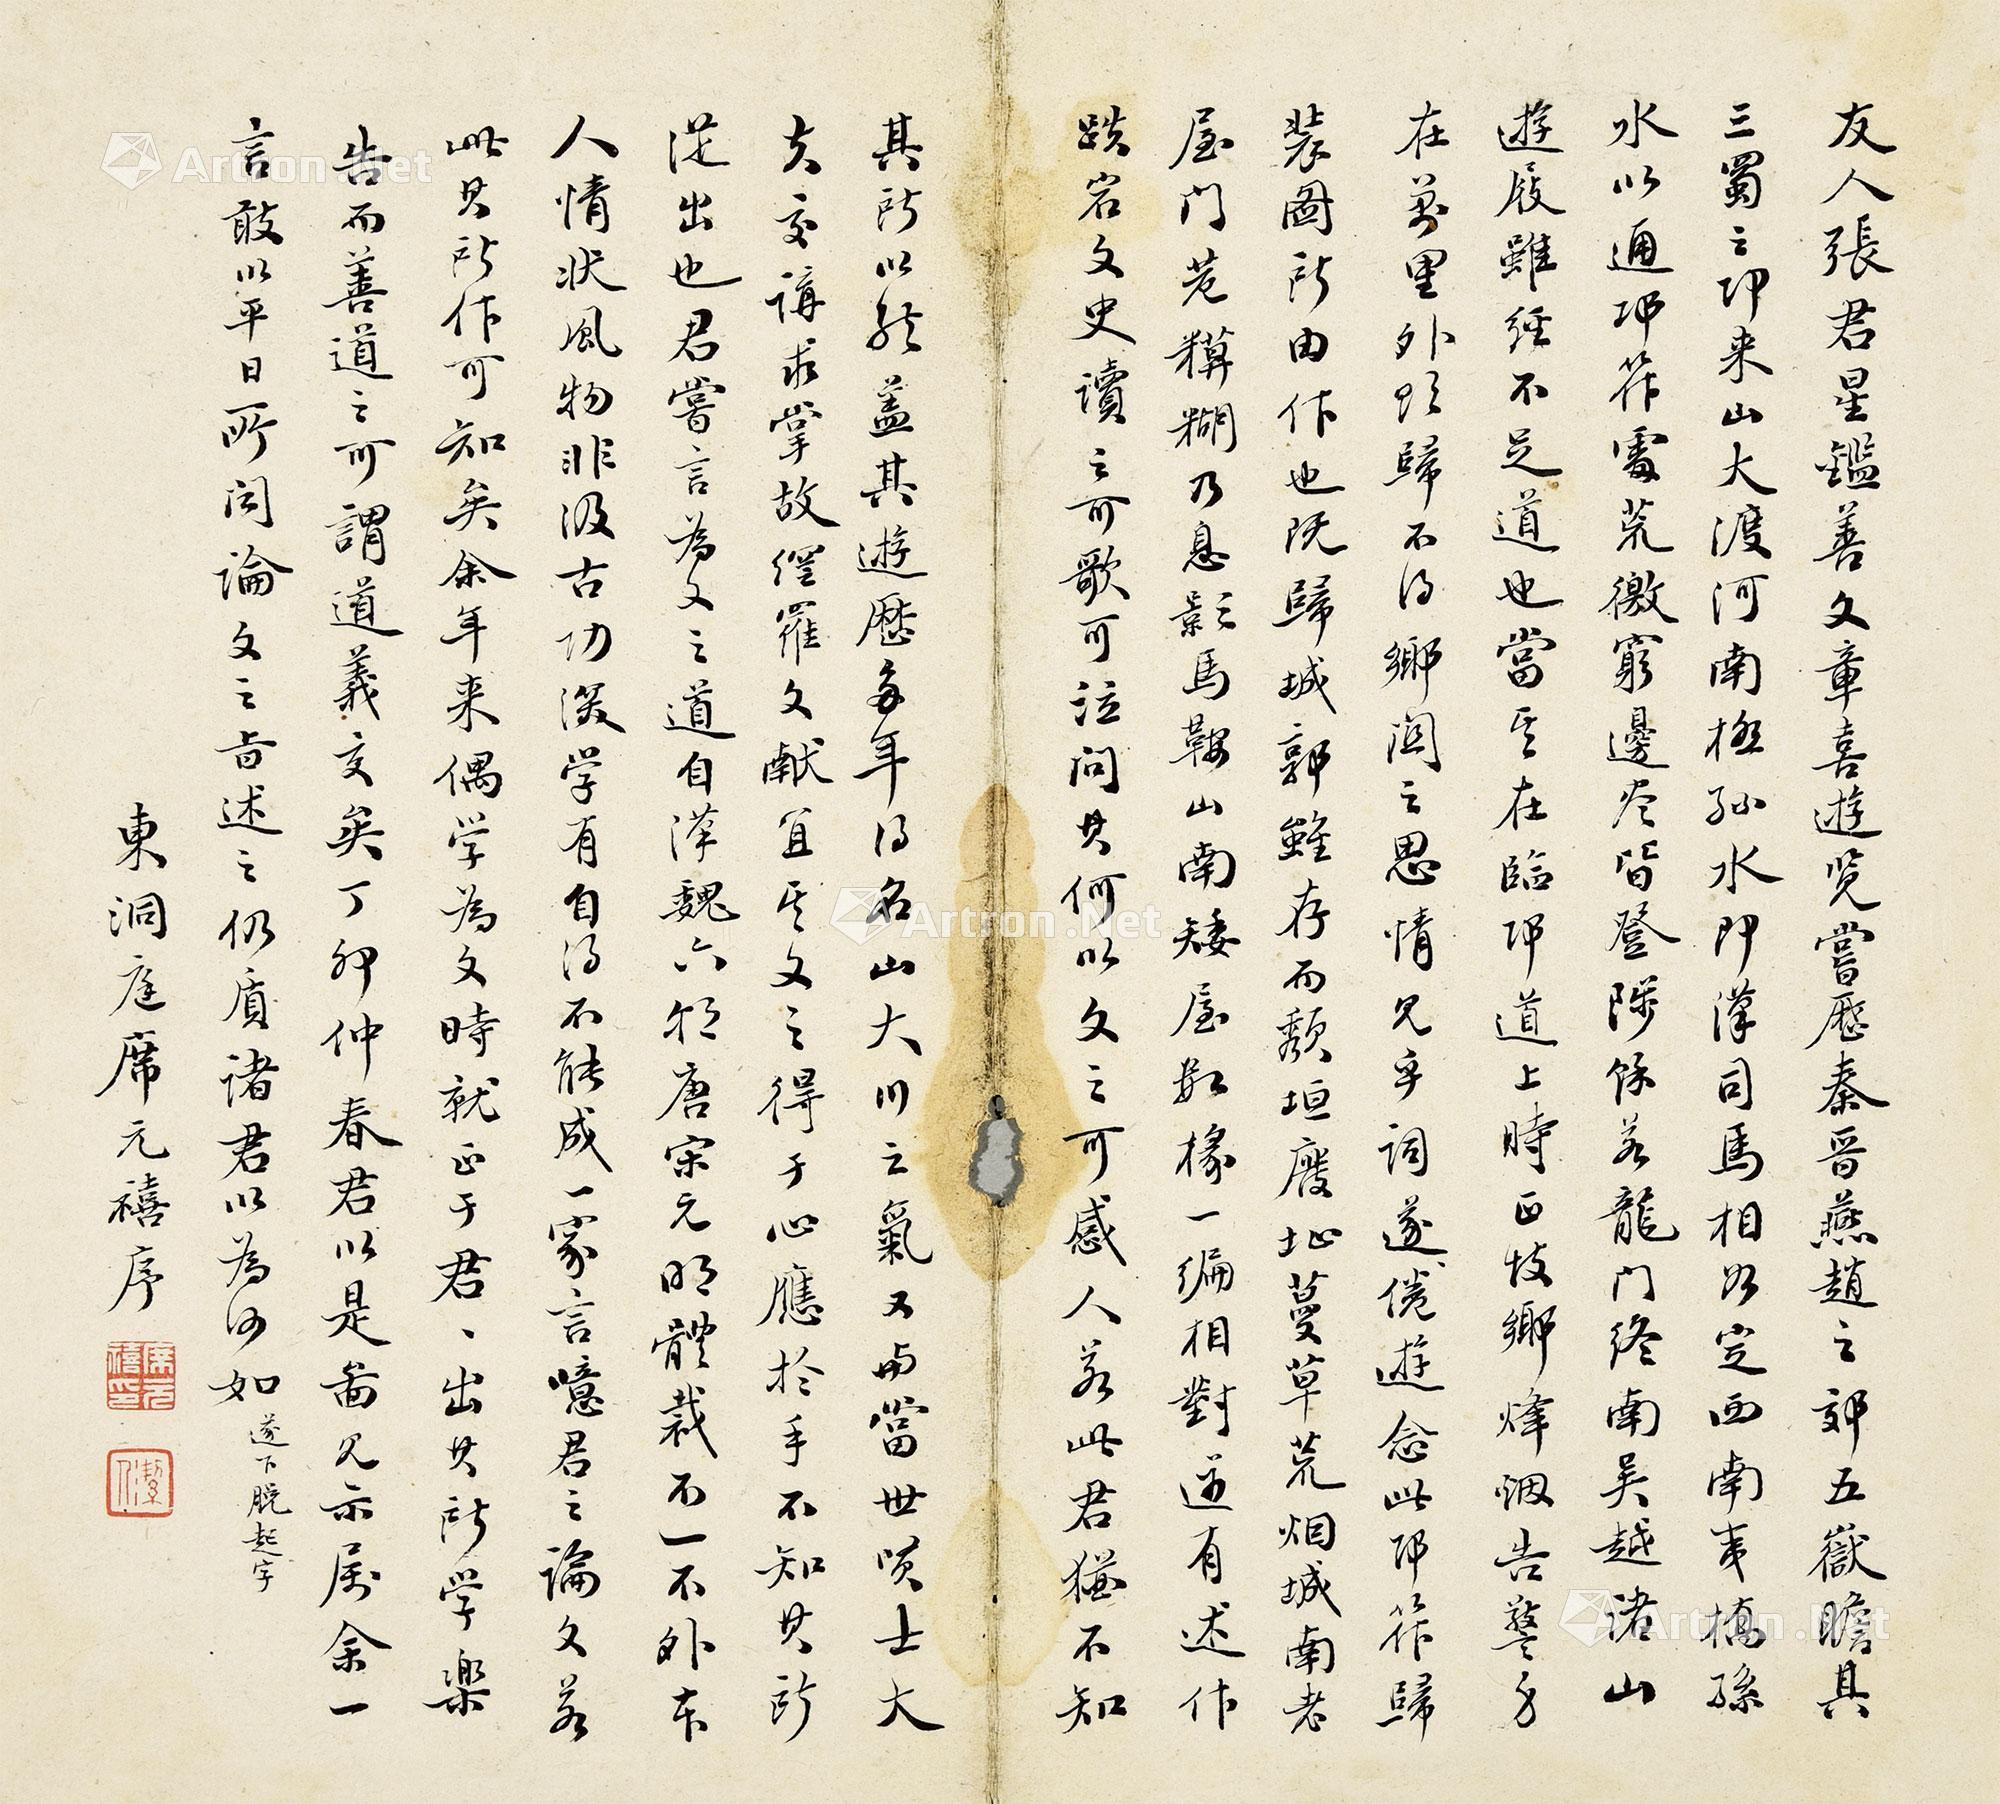 友人張君星鑑善文章喜遊覽嘗歷秦晉燕趙之郊五嶽瞻其
三蜀之邛来山大渡河南極孫水即漢司馬相如定西南夷橋孫
水以通邛筰處荒徼窮邊君皆登陟條若龍門終南吳越諸山
遊屐雖經不足道也當其在臨邛道上時正故鄉烽烟告警身
在萬里外欲歸不得鄉閭之思情見乎詞遂倦遊念此邛筰歸
裝圖所由作也既歸城郭雖存而頹垣廢址蔓草荒烟城南老
屋門巷糢糊乃息影馬鞍山南矮屋數椽一編相對並有述作
跌宕文史讀之可歌可泣問其何以文之可感人若此君猶不知
其所以然蓋其遊歷多年得名山大川之氣又與當世賢士大
夫交講求掌故網羅文献宜其文之得于心應於手不知其所
從出也君嘗言為文之道自漢魏六朝唐宋元明體裁不一不外本
人情狀風物非汲古功深学有自得不能成一家言噫君之論文若
此其所作可知矣余年来偶学為文時就正于君、出其所学樂
告而善道之可謂道義交矣丁卯仲春君以是圖見示属余一
言敢以平日所聞論文之旨述之仍質諸君以為何如
遂下脫起字
東洞庭席元禧序
席元禧印
Artron.Net
Artron.Net
Artron.Net